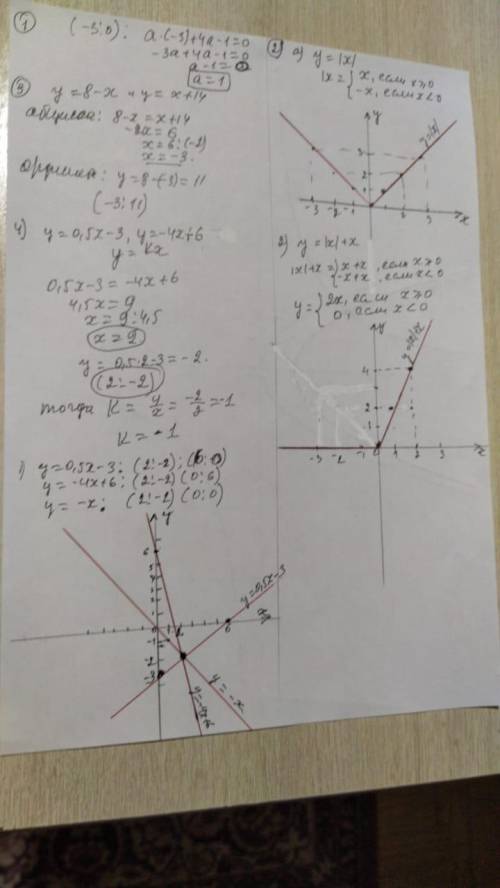 ① (-3;0): a·(-3)+4a-1=0
-3a+4a-1=0
a-1=0
a=1
③ y=8-x и y=x+14
абцисса: 8-x=x+14
-2x=6
x=6:(-2)
x=-3.
ордината: y=8-(-3)=11
(-3;11)
4) y=0,5x-3, y=-4x+6
y=kx
0,5x-3=-4x+6
4,5x=9
x=9:4,5
x=2
y=0,5·2-3=-2.
(2;-2)
тогда K=y/x=-2/2=-1
K=-1
y=0,5x-3: (2;-2);
y=-4x+6; (2;-2) (0;6)
y=-x; (2;-2) (0;0)
y
6
5
0
6
-1
-2
-3
y=0,5x-3
y=-x
y=-4x+6
② а) y=|x|
|x={x, если x≥0
-x, если x<0
y
y=|x|
3
2
1
-3 -2 -1 0 2 3 x
y=|x|+x
|x|+x={x+x, если x≥0
-x+x, если x<0
y={2x, если x≥0
0, если x<0
y
4
2
1
-3 -2 -1 0 1 2 3 x